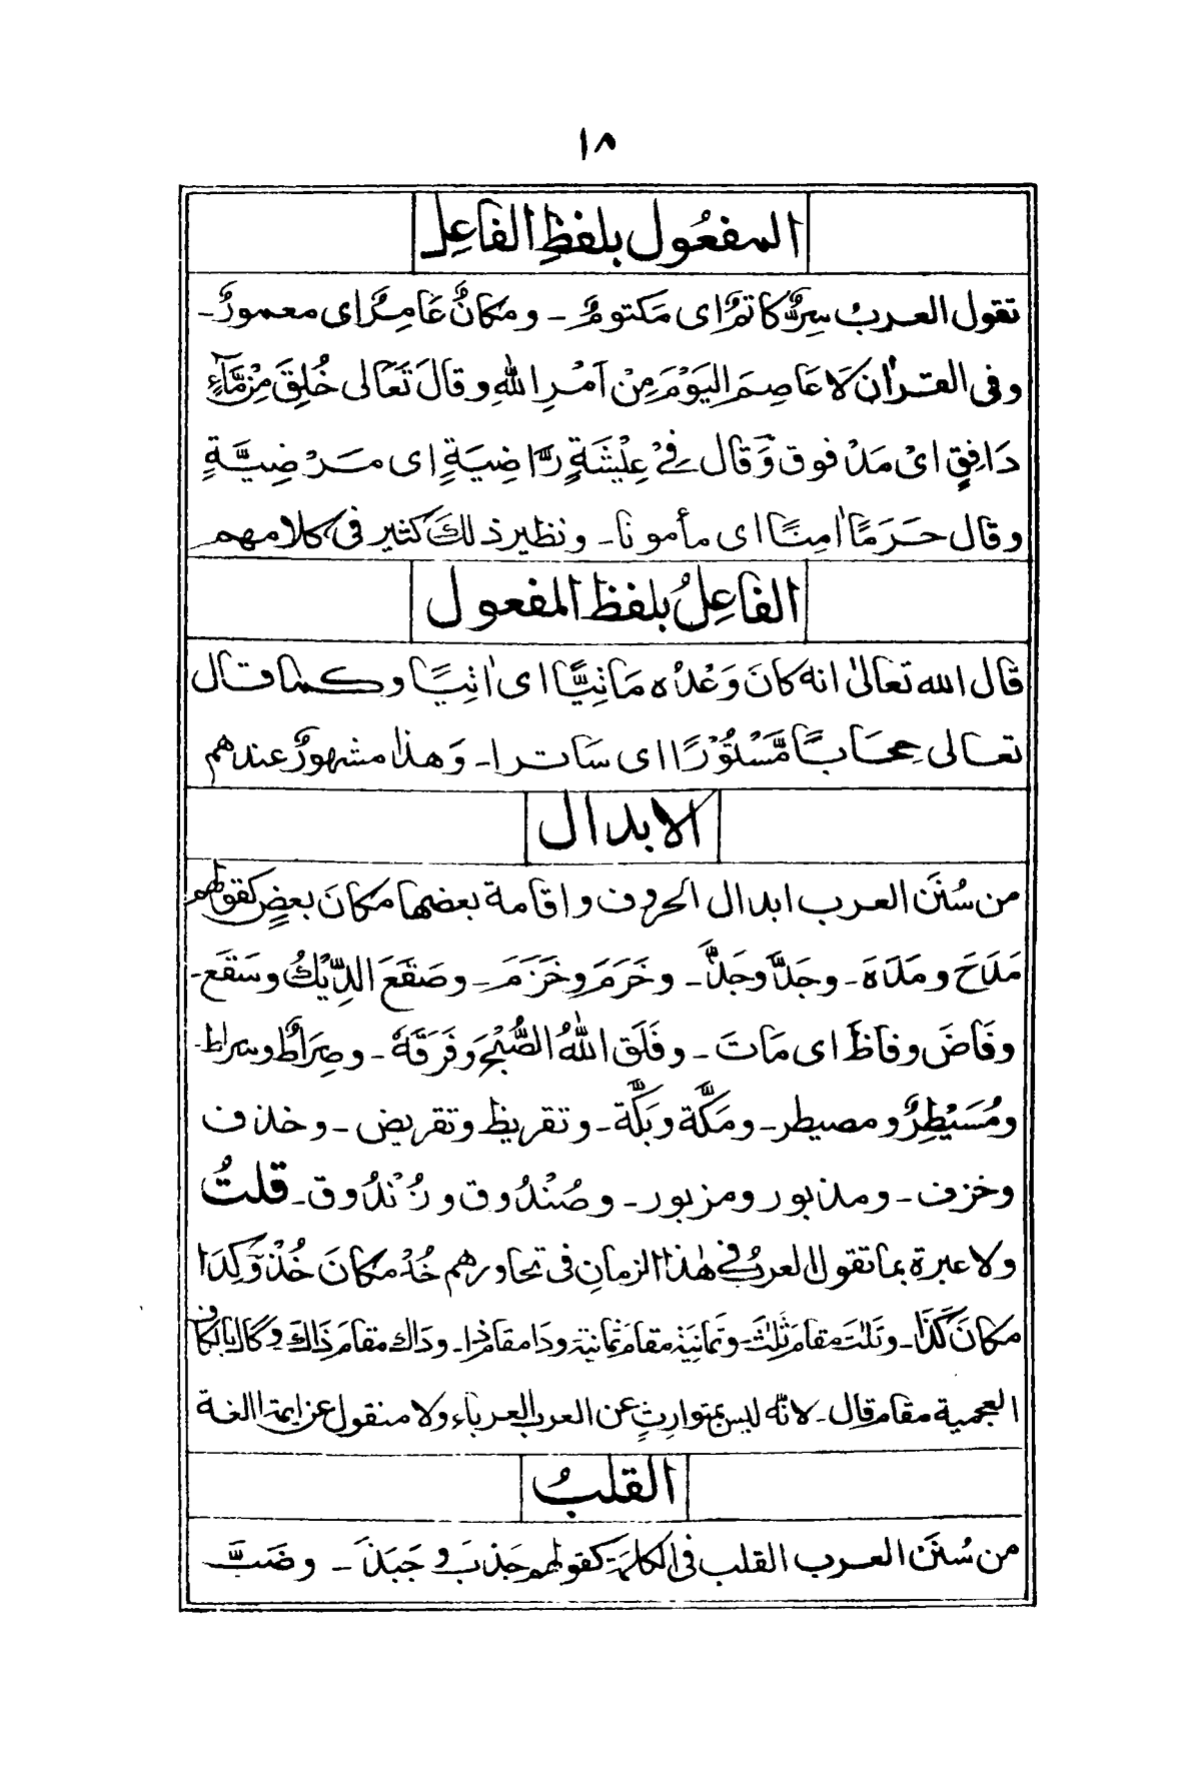 ١٨
المفعُول بلفظِ الفاعِل
تقول العربُ سِرٌّ كاتمٌ ای مَكتومٌ ۔ ومكانٌ عَامِرٌ ای معمورٌ ۔
وفی القراٰن لَا عَاصِمَ الیَوْمَ مِنْ اَمْرِ اللّٰهِ وقالَ تَعَالی خُلِقَ مِنْ مَّآءٍ
دَافِقٍ ایْ مَدْفوق وَقال فِیْ عِیْشَةٍ رَّاضِیَةٍ ای مَرْضِیَّةٍ
وقال حَرَمًا اٰمِنًا ای مأمونا ۔ ونظیر ذلكَ كثیر فی كلامهم
الفاعِلُ بلفظ المفعول
قال الله تعالیٰ انه كانَ وَعْدُه مَاتِیًّا ای اٰتِیًا وكما قال
تعالی حِجَابًا مَّسْتُوْرًا ای سَاترا ۔ وَهذا مشهورٌ عندهم
الابدال
من سُنَن العرب ابدال الحروف واقامة بعضها مكانَ بعضٍ كقولهم
مَدَحَ ومَدَهَ ۔ وجَدَّ وجَذَّ ۔ وخَرَمَ وخَزَمَ ۔ وصَقَعَ الدِّیْكُ وسَقَعَ ۔
وفَاضَ وفاظَ ای مَاتَ ۔ وفَلَق اللّٰهُ الصُّبْحَ وفَرَقَهٗ ۔ وصِرَاطٌ وسراط ۔
ومُسَیْطِرٌ ومصیطر ۔ ومَكَّة وبَكَّة ۔ وتقریظ وتقریض ۔ وخذف
وخزف ۔ ومذبور ومزبور ۔ وصُنْدُوق وزُنْدُوق ۔ قلتُ
ولا عبرة بما تقول العربُ فی هٰذا الزمانِ فی تحاورهم خُدْ مكانَ خُذْ وَكِدَا
مكانَ كَذَا ۔ وتَلٰتَ مقامَ ثَلٰثَ ۔ وتَمانِیَة مقامَ ثمانیة ودَا مقام ذا ۔ وداك مقامَ ذَاكَ وگال بالكاف
العجمیة مقام قال ۔ لانّه لیس بمتوارثٍ عن العرب العرباء ولا منقول عن ایمة اللغة
القلبُ
من سُنَن العرب القلب فی الكلمة كقولهم جَذبَ وجَبَذَ ۔ وضَبَّ